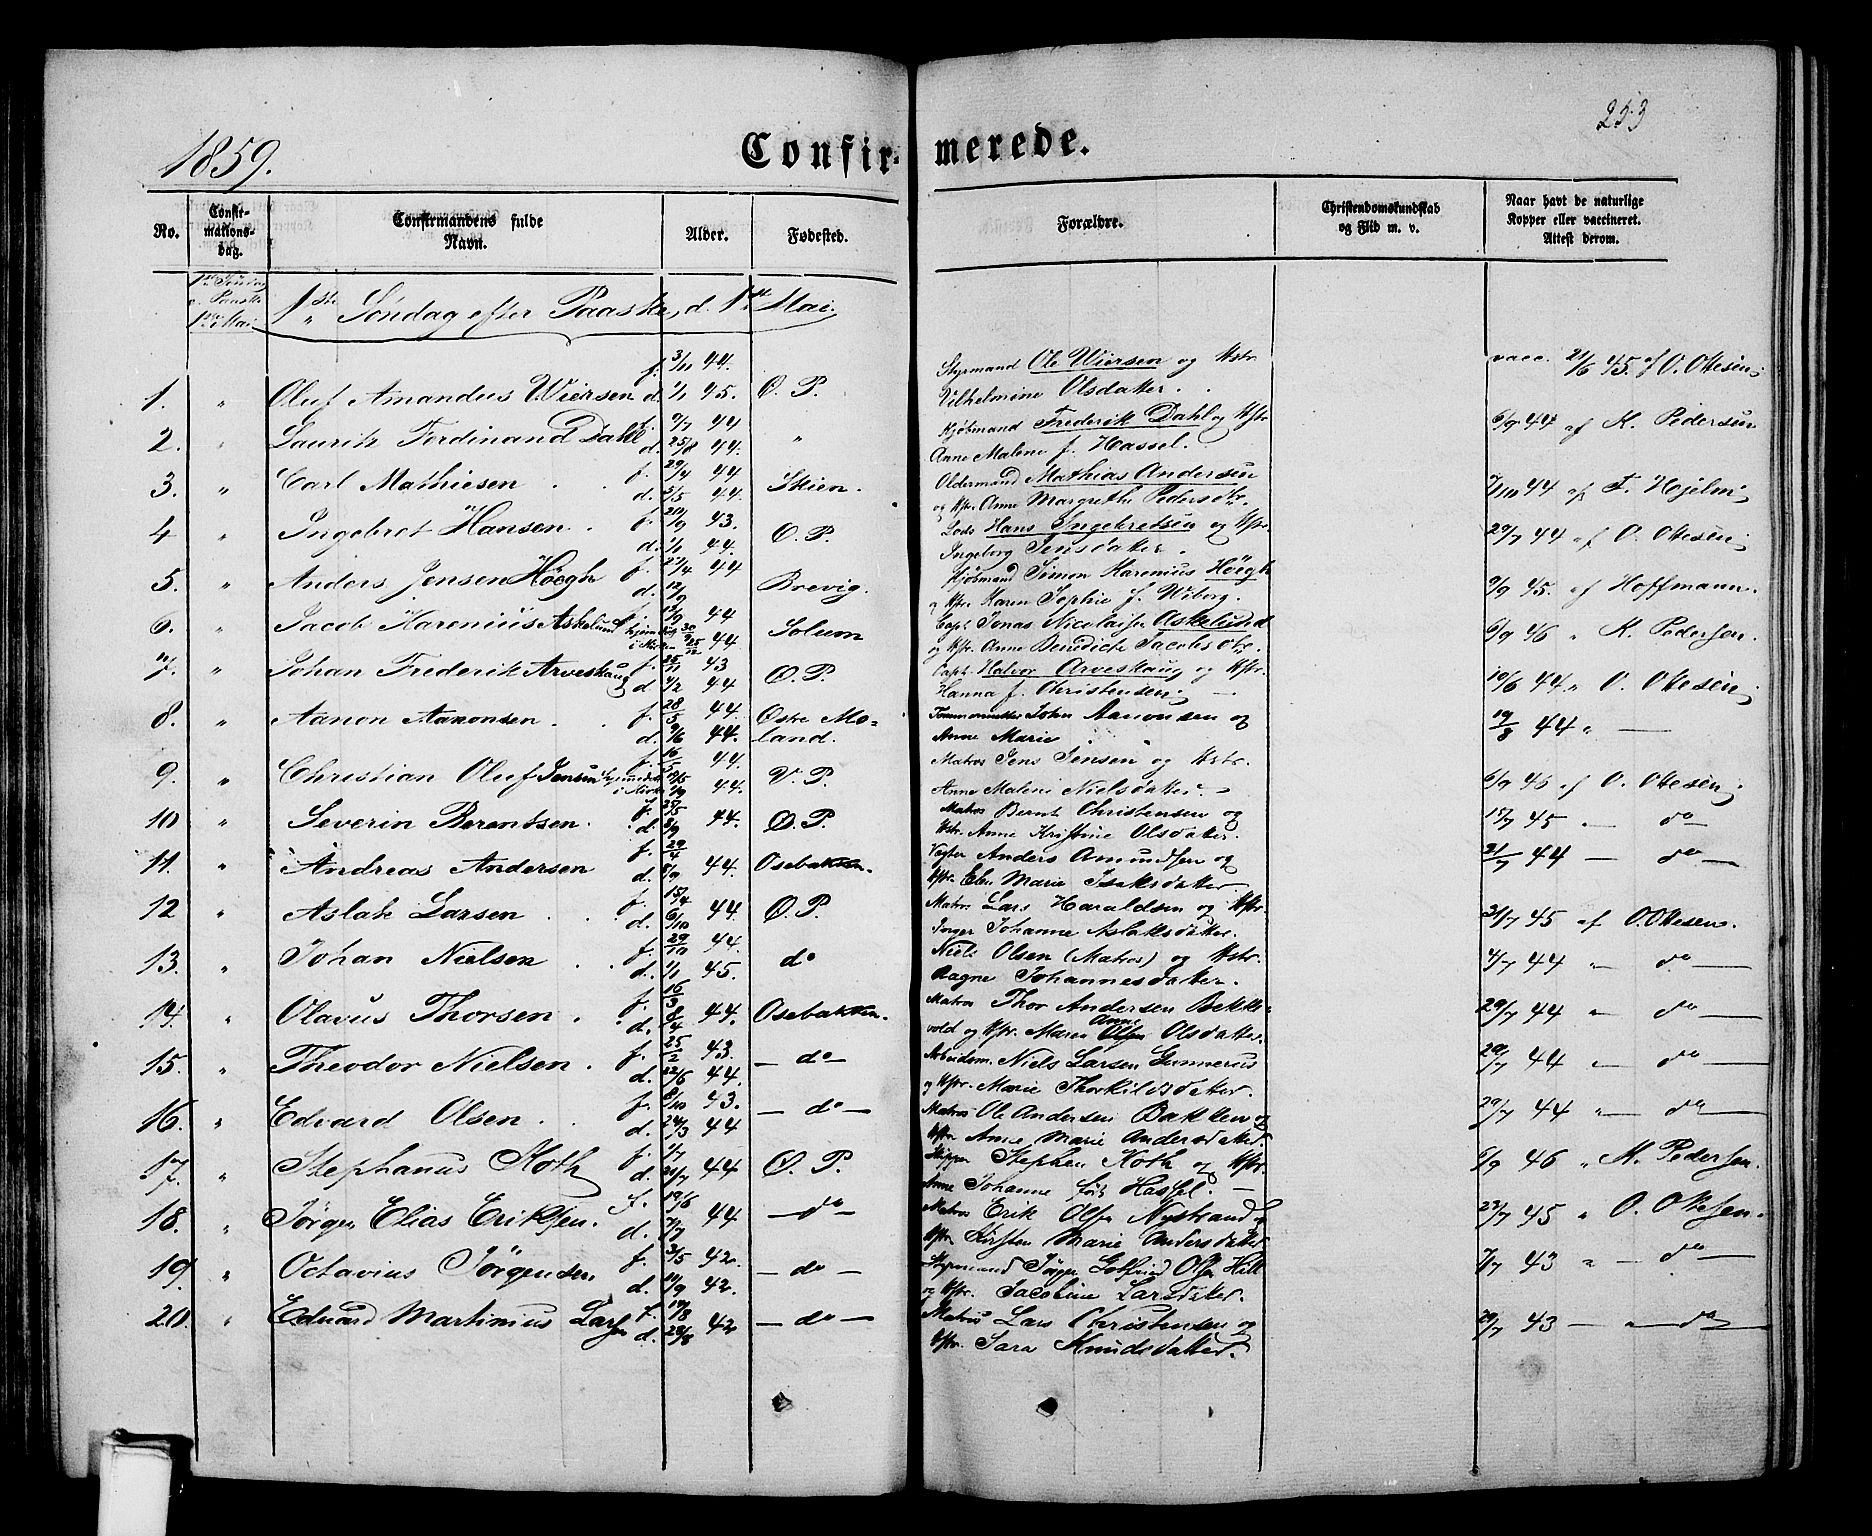 253
1859.
Confir-merede.
No.
Confir-
mations-
dag.
Confirmandens fulde
Navn.
Alder.
Fødested.
Forældre.
Christendomskundskab
og Flid m. v.
Naar havt de naturlige
Kopper eller vaccineret.
Attest derom.
1ste Søndag
e. Paaske
1ste Mai
1ste Søndag efter Paaske, d. 1ste Mai.
f. 3/11 44. Styrmand Ole Wiersen og Hstr. vacc. 21/6 45. af O. Ottesen
1. " Oluf Amandus Wiersen d. 1/1 45. Ø. P. Vilhelmine Olsdatter.
f. 9/7 44 Kjøbmand Frederik Dahl og Hstr 6/9 44 af K. Pedersen
2. " Lauritz Ferdinand Dahl d. 25/8 44. " Anne Malene f. Hassel.
f. 29/4 44 Oldermand Mathias Andersen
3. " Carl Mathiesen d. 3/5 44. Skien. og Hstr. Anne Margrethe Pedersdtr. 7/10 44 af F. Hjelm
f. 20/9 43. Lods Hans Ingebretsen og Hstr.
4 " Ingebret Hansen d. 1/1 44. Ø. P. Ingeborg Jensdatter. 29/7 44 af O. Ottesen
f. 27/4 44 Kjøbmand Simon Karenius Höegh
5. " Anders Jensen Höegh d. 12/9 Brevig. og Hstr. Karen Sophie f. Wiborg. 9/9 45. af Hoffmann.
6. " Jacob Karenius Askelund f. 13/9 44 Solum Capt. Jonas Nicolaisen Askelund 6/9 46 " K. Pedersen.
hjemdøbt 30/9 i Kirken 25/12 44 og Hstr. Anne Benedicte Jacobsdtr.
7. " Johan Frederik Arveskaug f. 25/11 43 Ø. P. Capt. Halvor Arveskaug og Hstr.
d. 4/2 44 Hanna f. Christensen 19/6 44 " O. Ottesen
8. " Aanon Aanonsen f. 28/5 44. Østre Mo- Tømmermester John Aanonsen og 19/8 44 "
d. 9/6 44. land. Anne Marie
f. 16/5 44. Matros Jens Jensen og Hstr.
9. " Christian Oluf Jensen hjemmedøbt 19/5 i Kirke 1/9 44. V. P. Anne Malene Nielsdatter. 6/9 46 af O. Ottesen
10 " Severin Berentsen. f. 25/5 d. 8/9 44. Ø. P. Matros Bernt Christensen og
Hstr. Anne Kristine Olsdatter. 17/7 45 — do
11. " Andreas Andersen f. 29/4 d. 8/9 44. Osebakken. Vægter Anders Amundsen og 21/7 44 — do
Hstr. Elen Marie Isaksdatter.
12 " Aslak Larsen f. 15/4 d. 6/10 44. Ø. P. Matros Lars Haraldsen og Hstr. 31/7 45 af O. Ottesen.
Inger Johanne Aslaksdatter.
13. " Johan Nielsen f. 29/10 44. do Niels Olsen (Matros) og Hstr.
d. 1/1 45. Aagne Johannesdatter. 4/7 44 " do
14. " Olavus Thorsen f. 16/3 d. 8/4 44. Osebakken. Matros Thor Andersen Bekke- 29/7 44 " do
vold og Hstr. Maren Anne Olsdatter.
15. " Theodor Nielsen. f. 25/2 43. — do — Arbeidsm. Niels Larsen Gunnerius 29/7 44 " do
d. 22/6 44. og Hstr. Marie Thorkildsdatter.
16. " Edvard Olsen. f. 8/10 43. — do — Matros Ole Andersen Bakken og 29/7 44 " do
d. 24/3 44 Hstr. Anne Marie Andersdatter.
17. " Stephanus Koth f. 4/7 d. 21/7 44 Ø. P. Skipper Stephen Koth og Hstr. 6/9 46 " K. Pedersen.
Anne Johanne født Hassel.
18. " Jørgen Elias Eriksen. f. 19/6 d. 7/7 44 — do — Matros Erik Olsen Nystrand og 22/7 45 " O. Ottesen.
Hstr Kirsten Marie Andersdatter
19. " Octavius Jørgensen f. 3/5 42. — do — Styrmand Jørgen Gotfried Olsen Hill 7/7 43 " — do
d. 10/9 42. og Hstr. Jacobine Larsdatter.
20. " Eduard Martinius Larsen f. 19/8 d. 28/8 42 — do — Matros Lars Christensen og 29/7 43 — " do
Hstr. Sara Knudsdatter.